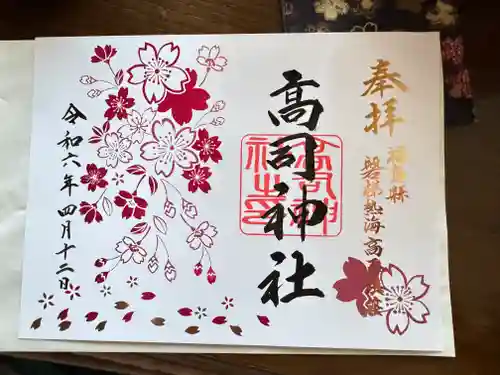 奉拝
福島縣
磐梯熱海高司
高司神社
令和六年四月十二日